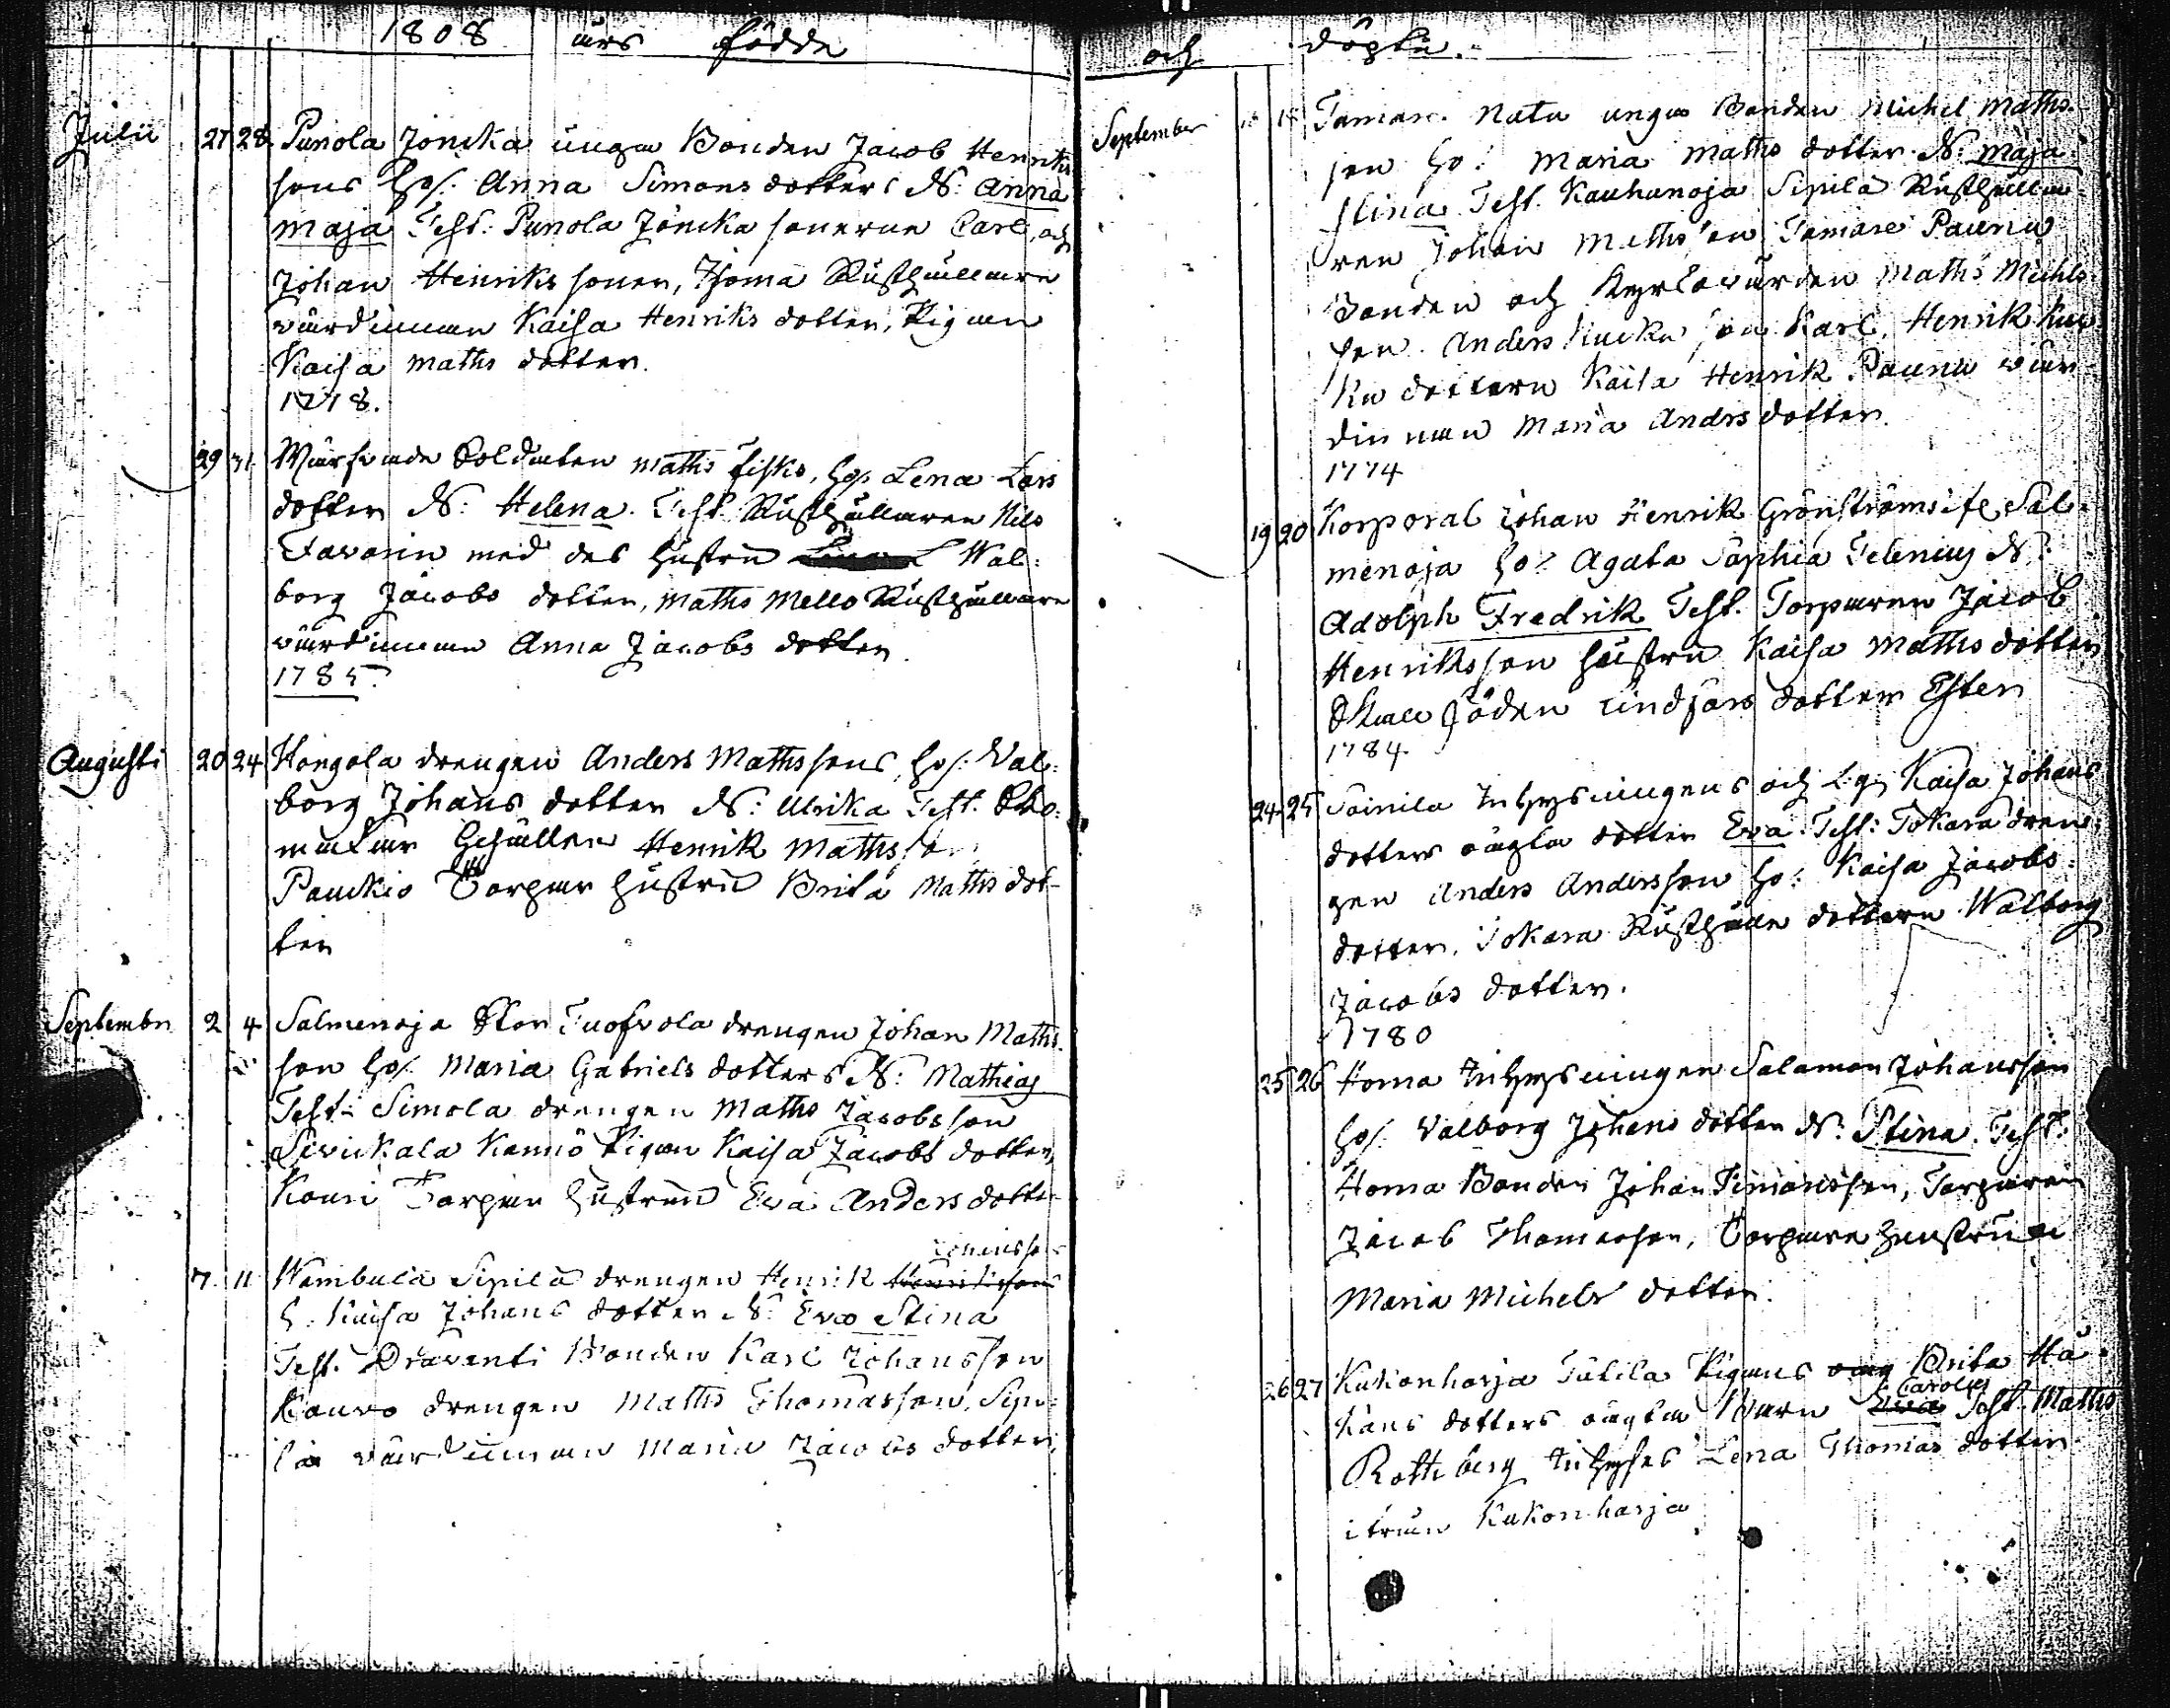 1808 års födde
Julii 27 28 Punola Joncka unga Bonden Jacob Henriks
sons Hs: Anna Simons dotters N: Anna
Maja Test: Punola Joncka sönerne Carl, och
Johan Henriks söner, Rusthållare
värdinnan Kaisa Henriks dotter, Pigan
Kaisa Maths dotter.
29 31 Soldaten Maths Fisko, Hs: Lena Lars
dotter N: Helena. Test Rusthållaren Nils
Tavarin med des hustru Wal:
borg Jacobs dotter, Maths Mello Rusthållare
värdinnan Anna Jacobs dotter
1785.
Augusti 20 24 Hongola drengen Anders Mathssons, Hs: Val:
borg Johans dotter N: Ulrika Test. Sko:
makar Gesällen Henrik Mathsson
Panckio Torpar hustru Brita Maths dot-
ter
Septembr 2 4 Salmenoja Stor drengen Johan Maths
son Hs: Maria Gabriels dotters N: Mathias
Test: Simola drengen Maths Jacobsson
Kannö Pigan Kaisa Jacobs dotter,
Kouri Torpar hustrun Eva Anders dotter
Johansson
7. 11 Wambula Sipilä drengen Henrik Henriksson
H: Kaisa Johans dotter N: Eva Stina
Test. Bonden Karl Johansson
Kauvo drengen Maths Thomasson, Sipi-
lä värdinnan Maria Jacobs dotter,
och döpte.
September 15 Tamare Nata unga Bonden Michel Maths
son Hs: Maria Maths dotter N: Maja
Stina Test. Kauhanoja Sipilä Rusthålla
ren Johan Mathsson Tamare Pauna
Bonden och Kyrkovärden Maths Michls
son. Anders son Karl, Henrik
dottern Kaisa Henrik Pauna vär
dinnan Maria Andrs dotter.
1774
19 20 Korporal Johan Henrik Grönströms ifr. Sal-
menoja Hs: Agata Sophia Telenius N:
Adolph Fredrik Test. Torparen Jacob
Henriksson hustru Kaisa Maths dotter
dotter Ester
1784
24 25 Soinila Inhysningens och Kaisa Johans
dotters oägta dotter Eva. Test: Tokara dren
gen Anders Andersson Hs: Kaisa Jacobs
dotter, Tokara Rusthållar dottern Walborg
Jacobs dotter.
1780
25 26 Homa Inhysningen Salamon Johansson
Hs: Valborg Johans dotter N: Stina. Test:
Homa Bonden Johan Simonsson, Torparen
Jacob Thomasson, Torpare hustrun
Maria Michels dotter.
26 27 Kukonharja Pigans Brita Hå-
Carolus
kans dotters oägta Barn Eva Test. Maths
Rothberg Inhyses Lena Thomas dotter
Kukonharja